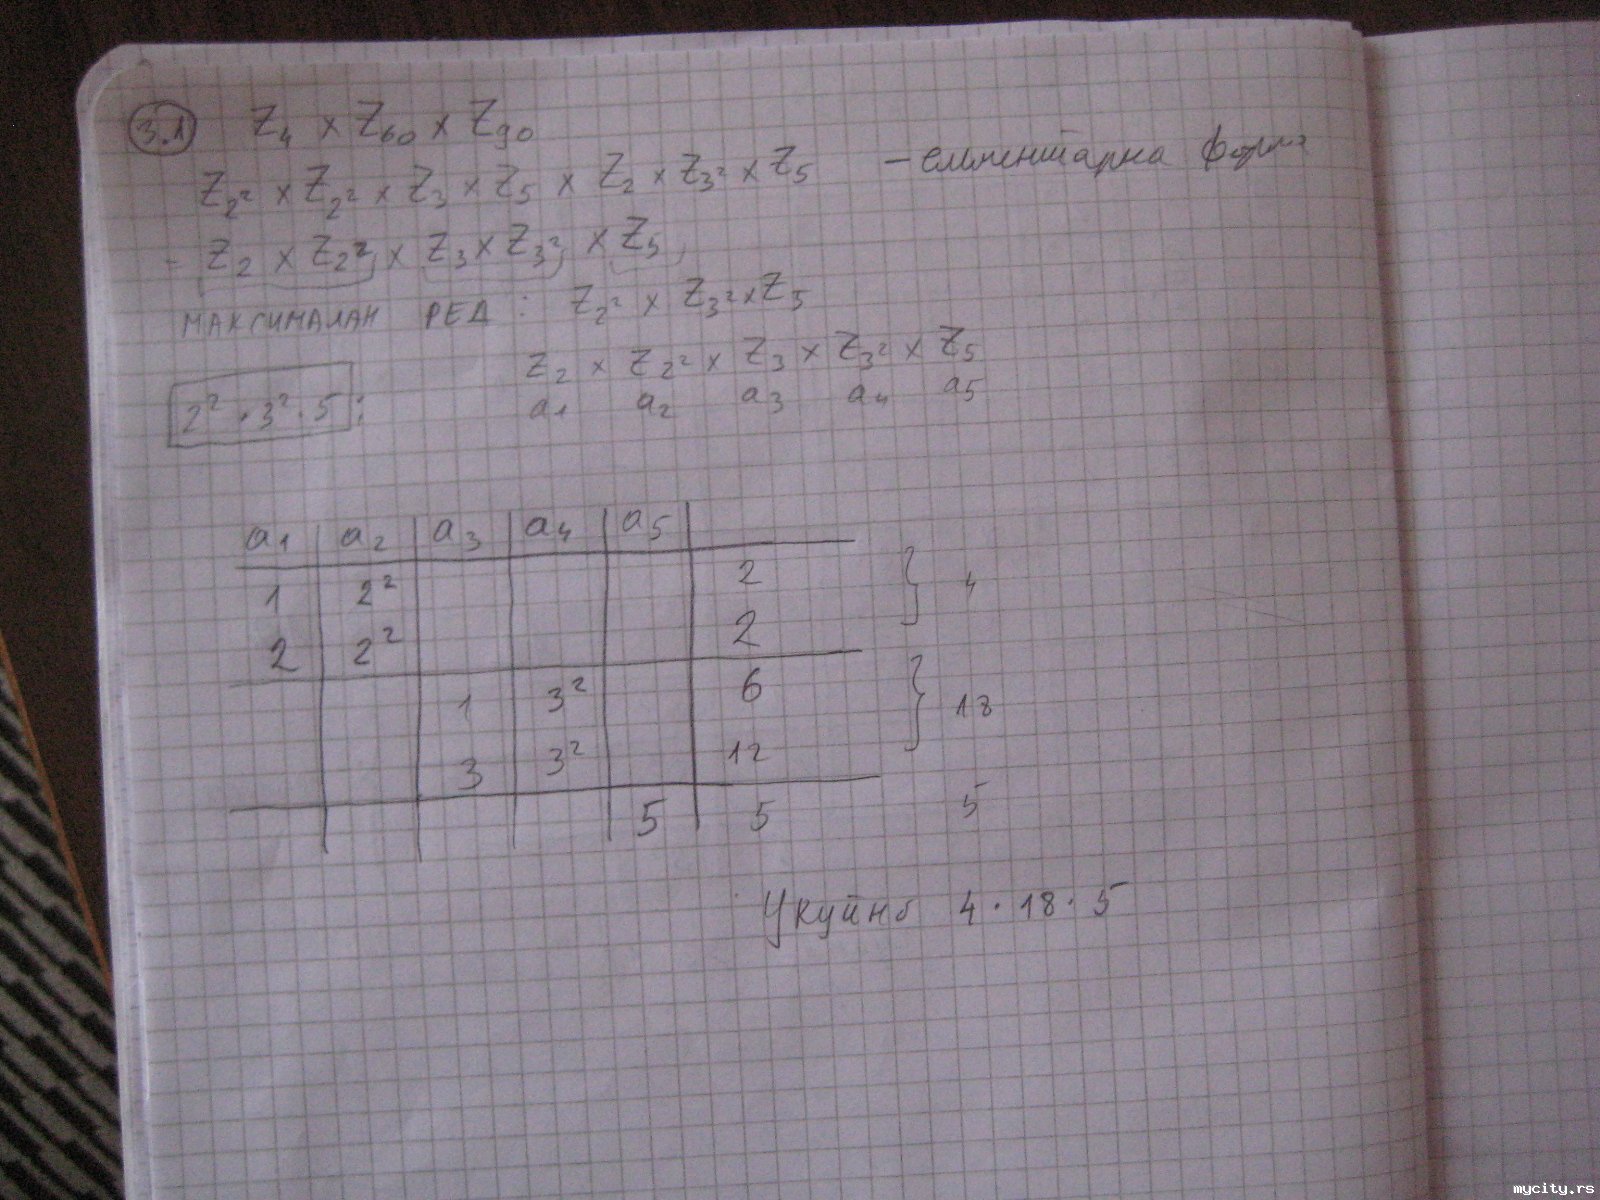 3.1 Z₄ × Z₆₀ × Z₉₀
Z₂² × Z₂² × Z₃ × Z₅ × Z₂ × Z₃² × Z₅ – елментарна форма
= Z₂ × Z₂² × Z₃ × Z₃² × Z₅
МАКСИМАЛАН РЕД : Z₂² × Z₃² × Z₅
Z₂ × Z₂² × Z₃ × Z₃² × Z₅
2² · 3² · 5 : a₁ a₂ a₃ a₄ a₅
a₁ a₂ a₃ a₄ a₅
1 2² 2 } 4
2 2² 2
1 3² 6 } 18
3 3² 12
5 5 5
Укупно 4 · 18 · 5
mycity.rs